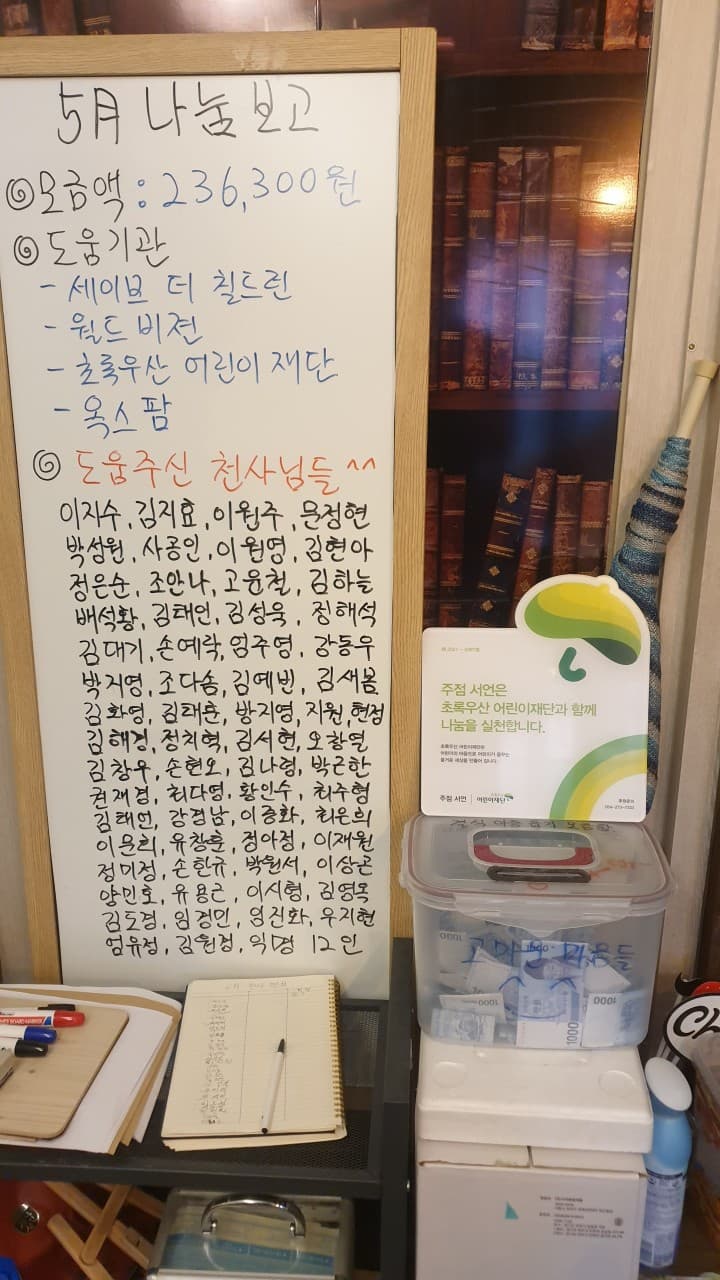 5月 나눔 보고
모금액 : 236,300원
도움기관
- 세이브 더 칠드런
- 월드비젼
- 초록우산 어린이 재단
- 옥스팜
도움주신 천사님들 ^^
이지수, 김지효, 이원주, 문정현
박성원, 사공인, 이원영, 김현아
정은순, 조안나, 고윤철, 김하늘
배석황, 김태인, 김성욱, 정해석
김대기, 손예락, 엄주영, 강동우
박지영, 조다솜, 김예빈, 김새봄
김화영, 김태훈, 방지영, 지원, 현정
김해경, 정치혁, 김서현, 오창열
김창우, 손현오, 김나경, 박근한
권재경, 최다영, 황인수, 최주형
김태언, 강경남, 이종화, 최은희
이문희, 유창훈, 정아정, 이재원
정미정, 손한규, 박원서, 이상곤
양민호, 유용근, 이시형, 김영목
김도경, 임경민, 임진화, 우지현
엄유정, 김원정, 익명 12인
주점 서언은
초록우산 어린이재단과 함께
나눔을 실천합니다.
초록우산 어린이재단은
어린이의 마음으로 어린이가 꿈꾸는
즐거운 세상을 만들어 갑니다.
주점 서언
어린이재단
후원문의
고마운 마음들
1000
1000
1000
1000